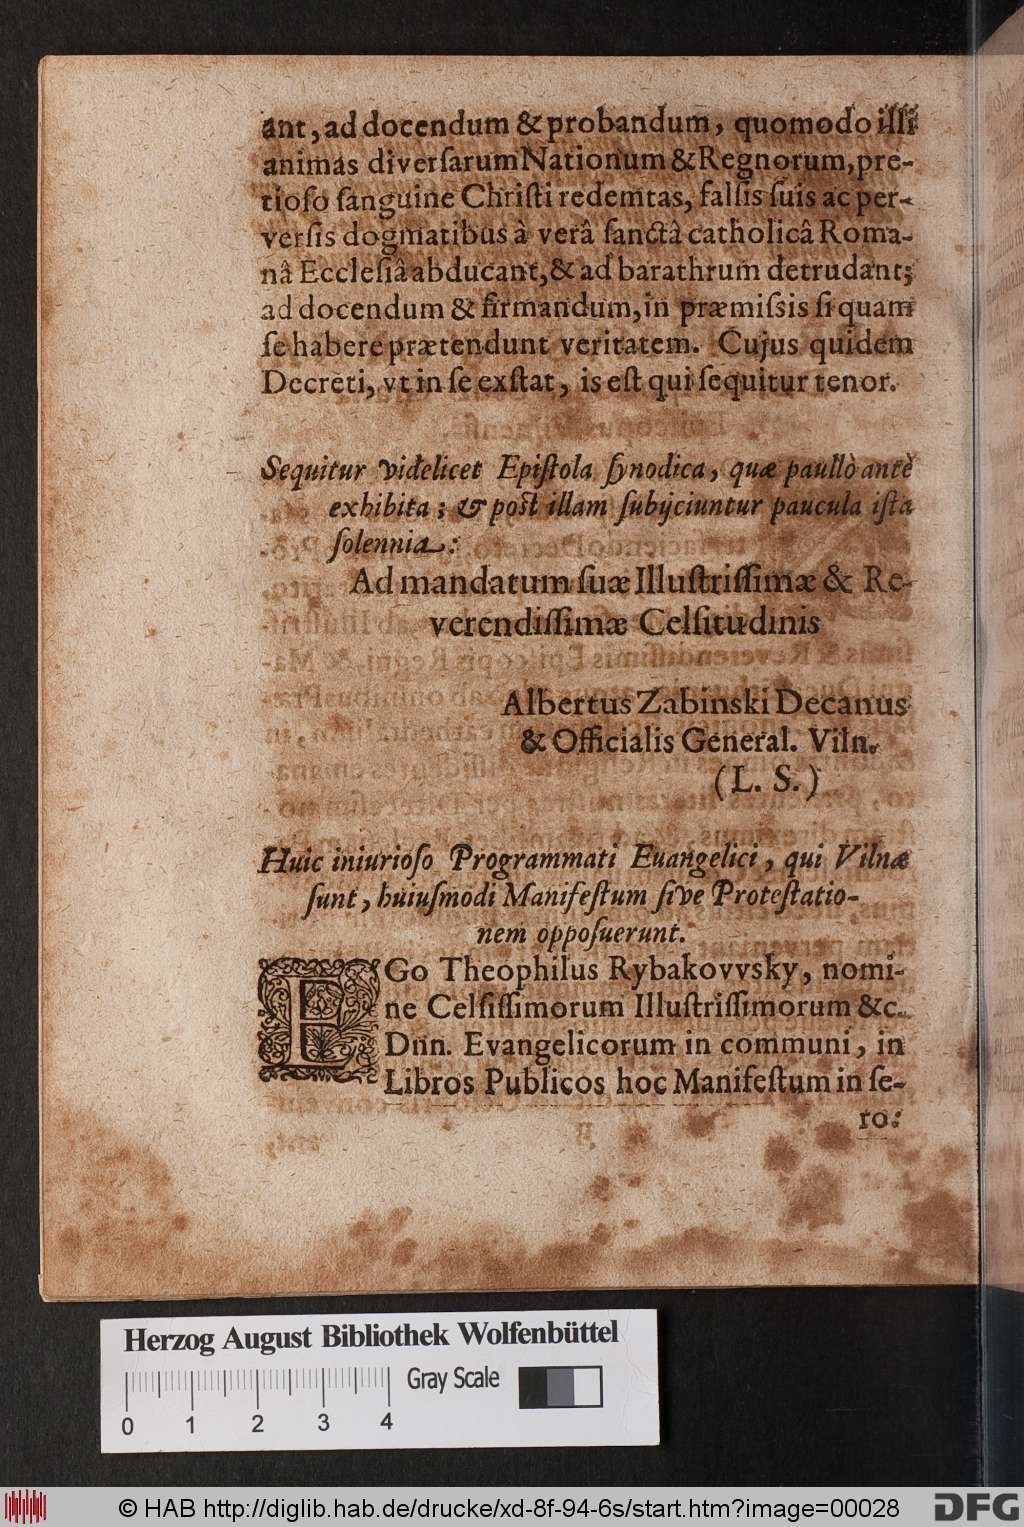 ant, ad docendum & probandum, quomodo illi
animas diverſarum Nationum & Regnorum, pre-
tioſo ſanguine Chriſti redemtas, falſis ſuis ac per-
verſis dogmatibus à verâ ſanctâ catholicâ Roma-
nâ Eccleſiâ abducant, & ad barathrum detrudant;
ad docendum & firmandum, in præmiſsis ſi quam
ſe habere prætendunt veritatem. Cujus quidem
Decreti, vt in ſe exſtat, is eſt qui ſequitur tenor.
Sequitur videlicet Epiſtola ſynodica, quæ paullò antè
exhibita; & poſt illam ſubijciuntur paucula iſta
ſolennia:
Ad mandatum ſuæ Illuſtriſſimæ & Re-
verendiſſimæ Celſitudinis
Albertus Zabinski Decanus
& Officialis General. Viln.
(L. S.)
Huic iniurioſo Programmati Euangelici, qui Vilnæ
ſunt, huiuſmodi Manifeſtum ſive Proteſtatio-
nem oppoſuerunt.
EGo Theophilus Rybakovvsky, nomi-
ne Celſiſſimorum Illuſtriſſimorum &c.
Dnn. Evangelicorum in communi, in
Libros Publicos hoc Manifeſtum in ſe-
ro:
Herzog August Bibliothek Wolfenbüttel
Gray Scale
0 1 2 3 4
© HAB http://diglib.hab.de/drucke/xd-8f-94-6s/start.htm?image=00028
DFG